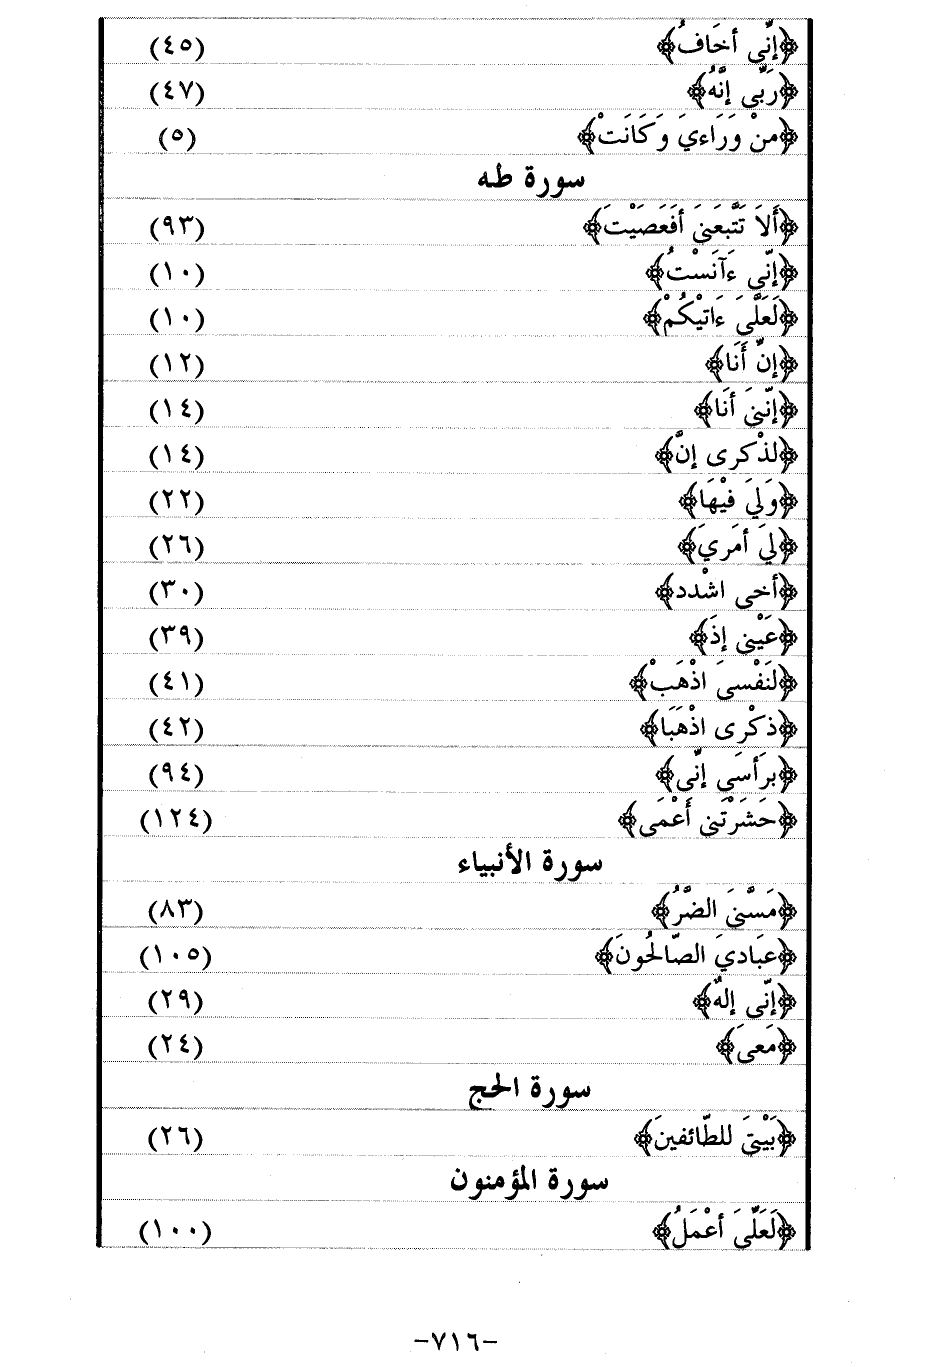 ﴿إنِّي أخَافُ﴾ (٤٥)
﴿رَبِّي إنَّهُ﴾ (٤٧)
﴿منْ وَرَاءيَ وَكَانَتْ﴾ (٥)
سورة طه
﴿أَلاَ تَتَّبعَنِ أفَعَصَيْتَ﴾ (٩٣)
﴿إنِّي ءَآنَسْتُ﴾ (١٠)
﴿لَعَلَّيَ ءَاتيْكُمْ﴾ (١٠)
﴿إنِّ أَنَا﴾ (١٢)
﴿إنَّنيَ أنَا﴾ (١٤)
﴿لذْكرى إنَّ﴾ (١٤)
﴿وَليَ فيْهَا﴾ (٢٢)
﴿ليَ أمَريَ﴾ (٢٦)
﴿أخى اشْدد﴾ (٣٠)
﴿عَيْني إذَ﴾ (٣٩)
﴿لنَفْسىَ اذْهَبْ﴾ (٤١)
﴿ذكْرى اذْهَبَا﴾ (٤٢)
﴿برَأسَي إنِّي﴾ (٩٤)
﴿حَشَرْتَني أَعْمَى﴾ (١٢٤)
سورة الأنبياء
﴿مَسَّنىَ الضَّرُّ﴾ (٨٣)
﴿عبَاديَ الصَّالحُونَ﴾ (١٠٥)
﴿إنِّى إلهٌ﴾ (٢٩)
﴿مَعىَ﴾ (٢٤)
سورة الحج
﴿بَيْتىَ للطَّائفينَ﴾ (٢٦)
سورة المؤمنون
﴿لَعَلَّىَ أعْمَلُ﴾ (١٠٠)
-٧١٦-